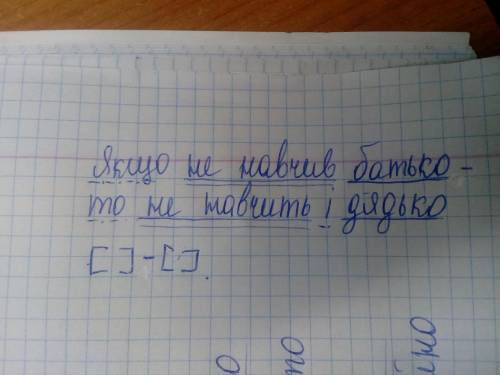 Якщо не навчив батько -
то не навчить і дядько
[ ] - [ ].